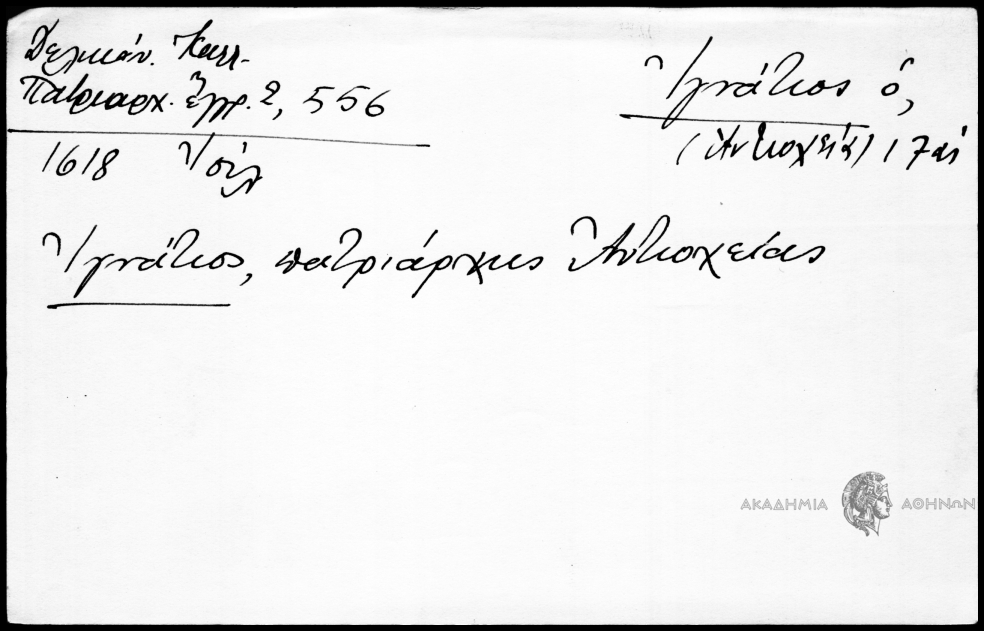 Δελικάν. Καλλ.
Πατριαρχ. ἔγγρ. 2, 556
1618
Ἰγνάτιος ὁ,
(Ἀντιοχείας) 17 αἰ
Ἰγνάτιος, πατριάρχης Ἀντιοχείας
ΑΚΑΔΗΜΙΑ ΑΘΗΝΩΝ